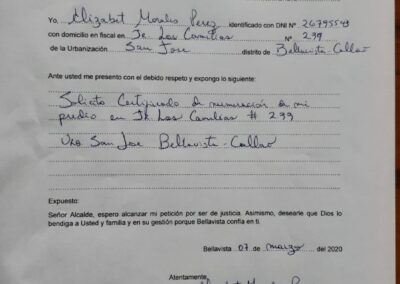 Yo, Elizabet Morales Perez identificado con DNI N° 26795549
con domicilio en fiscal en Jr. Las Camelias N° 299
de la Urbanización San Jose distrito de Bellavista-Callao
Ante usted me presento con el debido respeto y expongo lo siguiente:
Solicito Certificado de numeración de mi
predio en Jr Las Camelias # 299
Urb San Jose Bellavista-Callao
Expuesto:
Señor Alcalde, espero alcanzar mi petición por ser de justicia. Asimismo, desearle que Dios lo
bendiga a Usted y familia y en su gestión porque Bellavista confía en ti.
Bellavista 07 de marzo de 2020
Atentamente